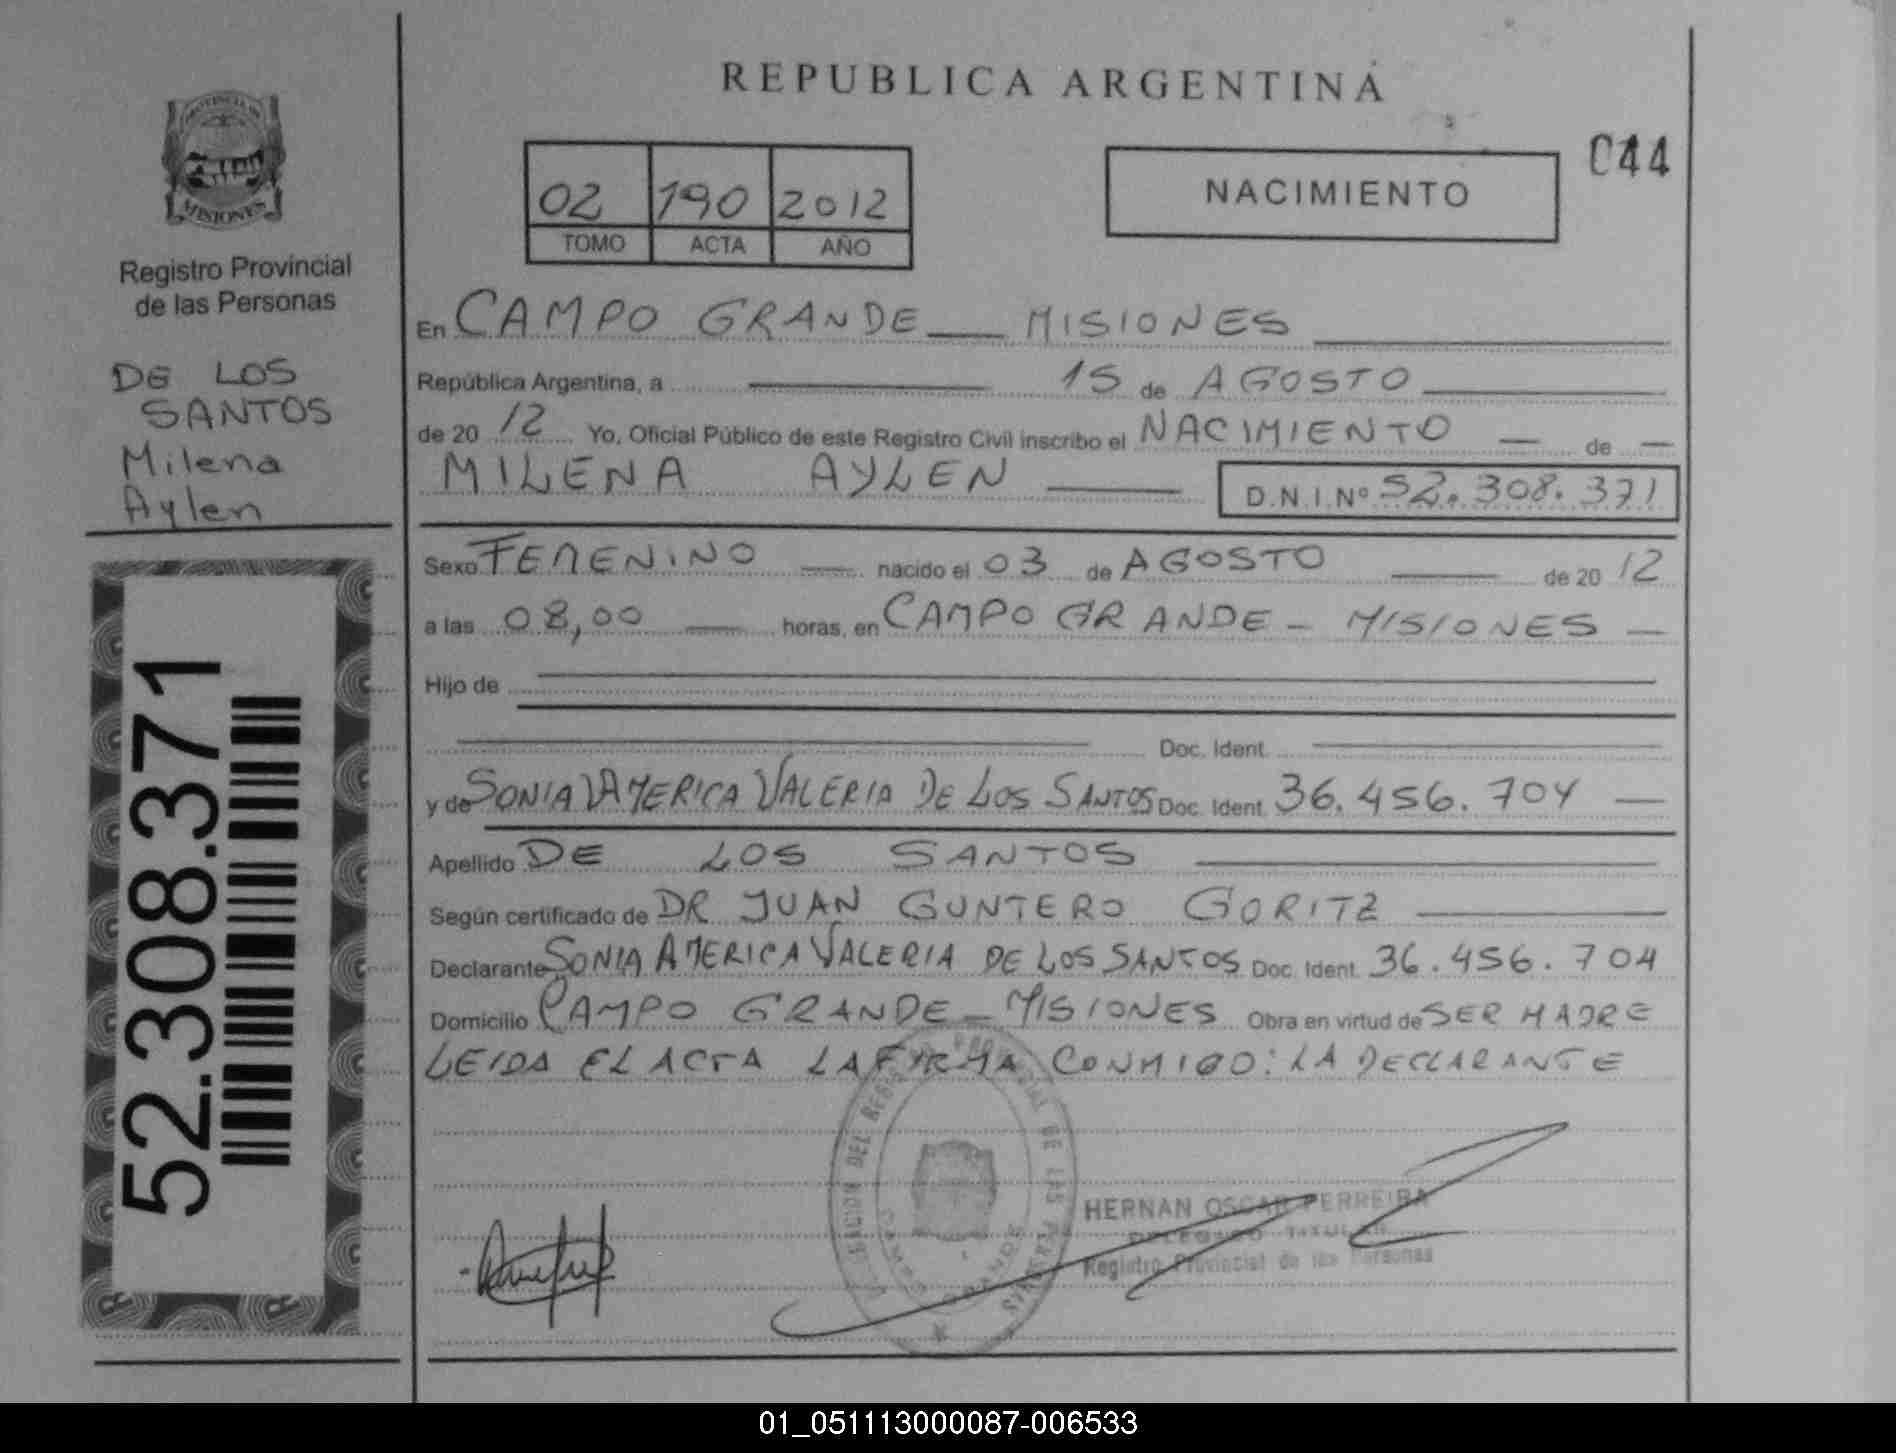 REPUBLICA ARGENTINA
PROVINCIA DE
MISIONES
Registro Provincial
de las Personas
DE LOS
SANTOS
Milena
Aylen
52.308.371
02 190 2012
TOMO ACTA AÑO
NACIMIENTO
044
En CAMPO GRANDE MISIONES
República Argentina, a 15 de AGOSTO
de 20 12 Yo, Oficial Público de este Registro Civil inscribo el NACIMIENTO de
MILENA AYLEN D.N.I.Nº 52.308.371
Sexo FEMENINO nacido el 03 de AGOSTO de 20 12
a las 08,00 horas, en CAMPO GRANDE - MISIONES
Hijo de
Doc. Ident.
y de SONIA AMERICA VALERIA DE LOS SANTOS Doc. Ident. 36.456.704
Apellido DE LOS SANTOS
Según certificado de DR JUAN GUNTERO GORITZ
Declarante SONIA AMERICA VALERIA DE LOS SANTOS Doc. Ident. 36.456.704
Domicilio CAMPO GRANDE - MISIONES Obra en virtud de SER MADRE
LEIDA EL ACTA LA FIRMA CONMIGO: LA DECLARANTE
DEL REGISTRO PROVINCIAL DE LAS PERSONAS
CAMPO GRANDE
HERNAN OSCAR FERREIRA
DELEGADO TITULAR
Registro Provincial de las Personas
01_051113000087-006533